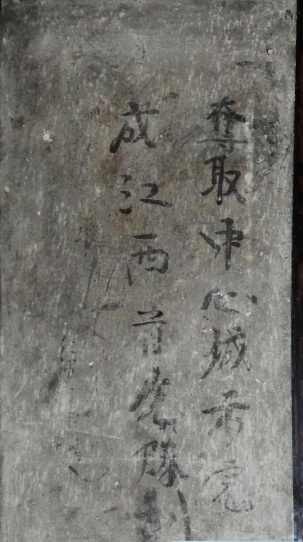 奪取中心城市完
成江西首先勝利